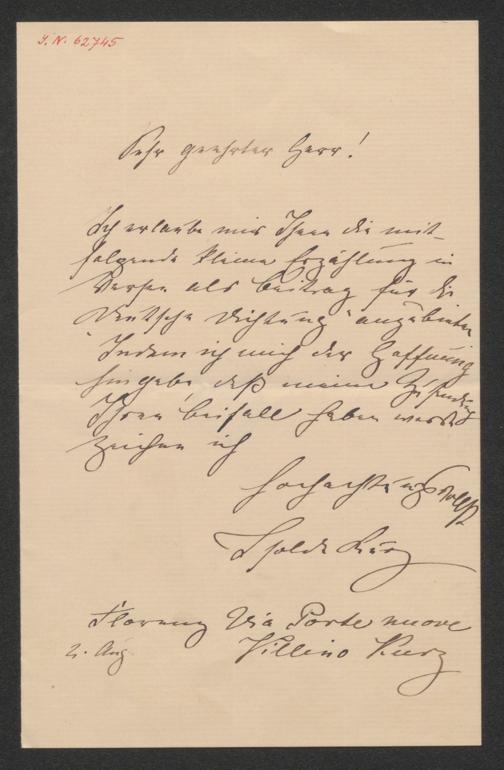 I. N. 62745
Sehr geehrter Herr!
Ich erlaube mir Ihnen die mit-
folgende kleine Erzählung in
Versen als Beitrag für die
"Deutsche Dichtung" anzubieten
Indem ich mich der Hoffnung
hingebe, daß meine Zusendung
Ihren Beifall haben werde
zeichne ich
hochachtungsvollst
Isolde Kurz
Florenz Via Porte nuove
Villino Kurz
2. Aug.